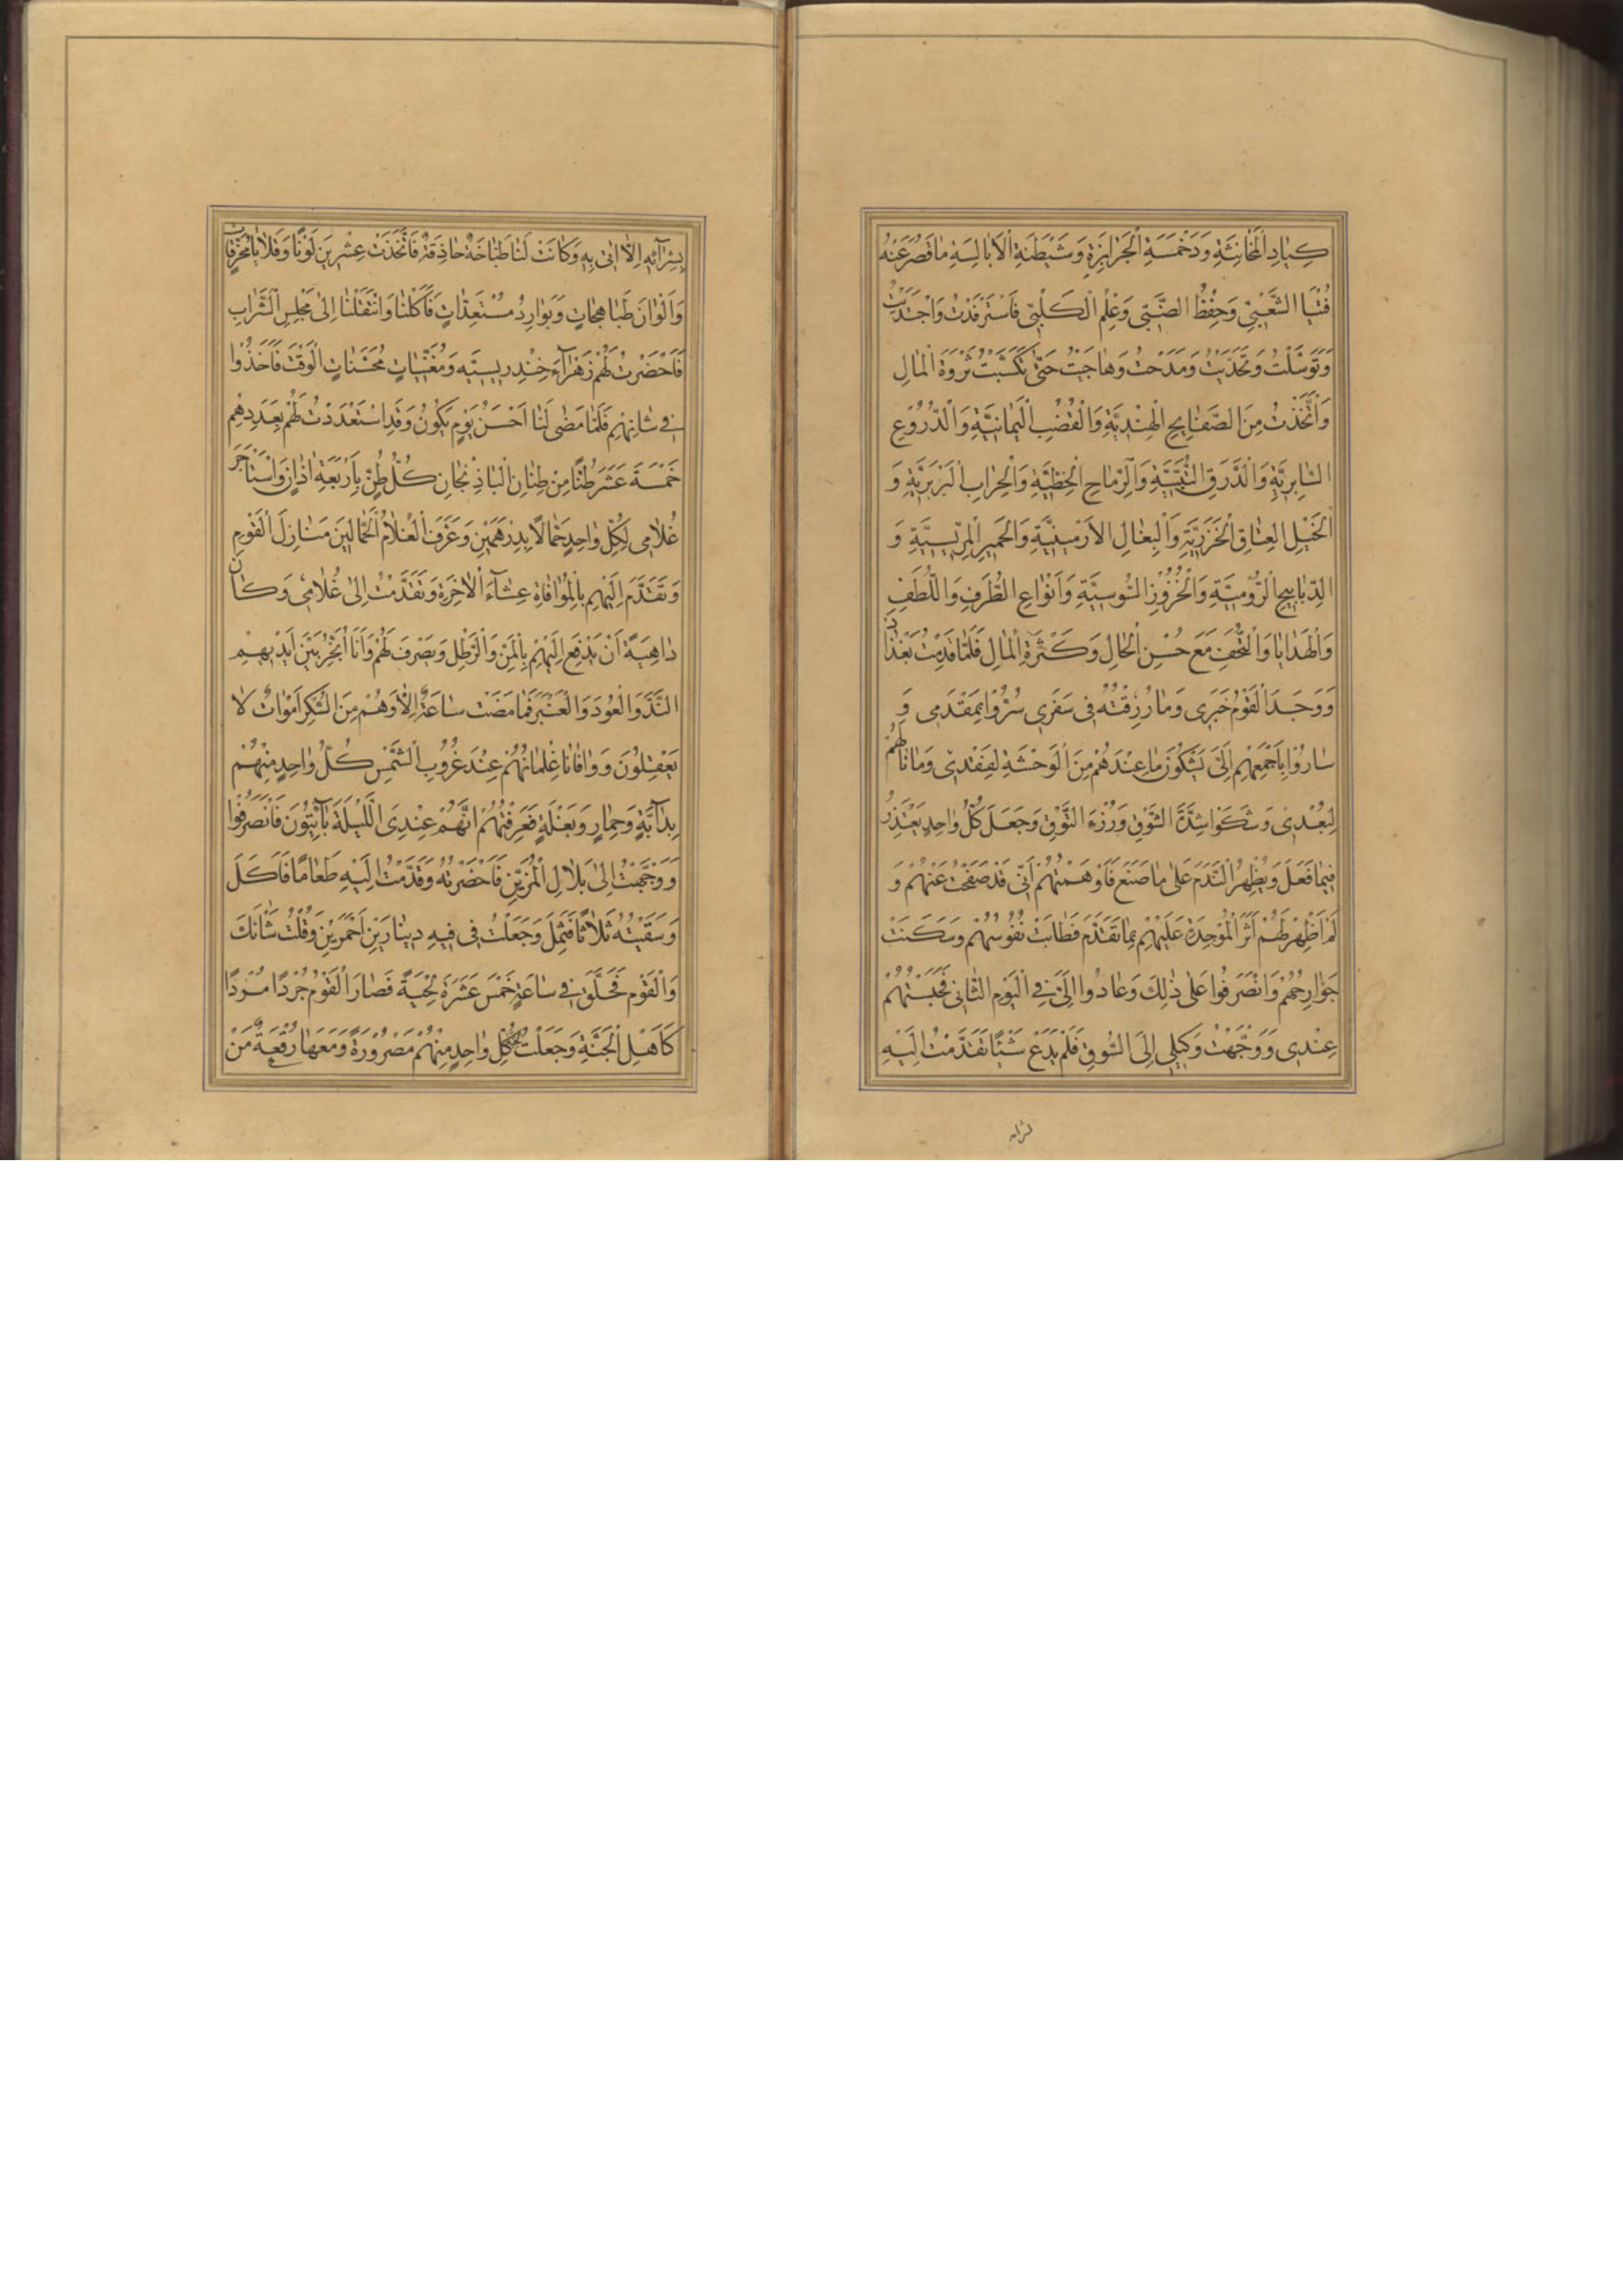 كِيَادِ الْمَخَانِثَةِ وَدَخْمَسَةِ الْجَرَابِزَةِ وَشَيْطَنَةِ الْاَبَالِسَةِ مَا قَصُرَ عَنْهُ
فُتْيَا الشَّعْبِيِّ وَحِفْظُ الضَّبِّيِّ وَعِلْمُ الْكَلْبِيِّ فَاسْتَرْفَدْتُ وَاجْتَدَيْتُ
وَتَوَسَّلْتُ وَتَحَذَّيْتُ وَمَدَحْتُ وَهَاجَيْتُ حَتَّى كَسَبْتُ ثَرْوَةَ الْمَالِ
وَاتَّخَذْتُ مِنَ الصَّفَايِحِ الْهِنْدِيَّةِ وَالْقُضُبِ الْيَمَانِيَّةِ وَالدُّرُوعِ
السَّابِرِيَّةِ وَالدَّرَقِ التُّبَّتِيَّةِ وَالرِّمَاحِ الْخَطِّيَّةِ وَالْحِرَابِ الْبَرْبَرِيَّةِ وَ
الْخَيْلِ الْعِتَاقِ الْخَزَرِيَّةِ وَالْبِغَالِ الْاَرْمِينِيَّةِ وَالْحَمِيرِ الْمِرِّيسِيَّةِ وَ
الدَّبَابِيجِ الرُّومِيَّةِ وَالْخُزُوزِ السُّوسِيَّةِ وَاَنْوَاعِ الطُّرَفِ وَاللُّطَفِ
وَالْهَدَايَا وَالتُّحَفِ مَعَ حُسْنِ الْحَالِ وَكَثْرَةِ الْمَالِ فَلَمَّا قَدِمْتُ بَغْدَاذَ
وَوَجَدَ الْقَوْمُ خَبَرِى وَمَا رُزِقْتُهُ فِى سَفَرِى سُرُّوا بِمَقْدَمِى وَ
سَارُوا بِاَجْمَعِهِمْ اِلَيَّ يَشْكُونَ مَا عِنْدَهُمْ مِنَ الْوَحْشَةِ لِفَقْدِى وَمَا نَالَهُمْ
لِبُعْدِى وَشَكَوْا شِدَّةَ الشَّوْقِ وَرُزْءَ التَّوْقِ وَجَعَلَ كُلُّ وَاحِدٍ يَعْتَذِرُ
فِيمَا فَعَلَ وَيُظْهِرُ النَّدَمَ عَلَى مَا صَنَعَ فَاَوْهَمْتُهُمْ اَنِّى قَدْ صَفَحْتُ عَنْهُمْ وَ
لَمْ اَظْهِرْ لَهُمْ اَثَرَ الْمَوْجِدَةِ عَلَيْهِمْ بِمَا تَقَدَّمَ فَطَابَتْ نُفُوسُهُمْ وَسَكَنَتْ
جَوَارِحُهُمْ وَانْصَرَفُوا عَلَى ذٰلِكَ وَعَادُوا اِلَيَّ فِى الْيَوْمِ الثَّانِى فَحَبَسْتُهُمْ
عِنْدِى وَوَجَّهْتُ وَكِيلِى اِلَى السُّوقِ فَلَمْ يَدَعْ شَيْئًا تَقَدَّمْتُ اِلَيْهِ
بِشِرَآئِهِ اِلَّا اَتَى بِهِ وَكَانَتْ لَنَا طَبَّاخَةٌ حَاذِقَةٌ فَاتَّخَذَتْ عِشْرِينَ لَوْنًا وَقَلَايَا مُحْرِقَاتٍ
وَاَلْوَانَ طَبَاهِجَاتٍ وَبَوَارِدُ مُسْتَعِدَّاتٍ فَاَكَلْنَا وَانْتَقَلْنَا اِلَى مَجْلِسِ الشَّرَابِ
فَاَحْضَرْتُ لَهُمْ زَهْرَآءَ خَنْدَرِيسِيَّه وَمُغَنِّيَاتٍ مُحَسِّنَاتٍ الْوَقْتَ فَاَخَذُوا
فِى شَانِهِمْ فَلَمَّا مَضَى لَنَا اَحْسَنُ يَوْمٍ يَكُونُ وَقَدِ اسْتَعْدَدْتُ لَهُمْ بِعَدَدِهِمْ
خَمْسَةَ عَشَرَ طُنًّا مِنْ طِنَانِ الْبَاذِنْجَانِ كُلُّ طُنٍّ بِاَرْبَعَةِ اٰذَانٍ وَاسْتَاْجَرَ
غُلَامِى لِكُلِّ وَاحِدٍ حَمَّالًا بِدِرْهَمَيْنِ وَعَرَّفَ الْغُلَامُ الْحَمَّالِينَ مَنَازِلَ الْقَوْمِ
وَتَقَدَّمَ اِلَيْهِمْ بِالْمُوَافَاةِ عِشَآءَ الْاٰخِرَةِ وَتَقَدَّمْتُ اِلَى غُلَامِى وَكَانَ
دَاهِيَةً اَنْ يَدْفَعَ اِلَيْهِمْ بِالْمَنِّ وَالرَّطْلِ وَيَصْرِفَ لَهُمْ وَاَنَا اُبَخِّرُ بَيْنَ اَيْدِيهِمْ
النَّدَّ وَالْعُودَ وَالْعَنْبَرَ فَمَا مَضَتْ سَاعَةٌ اِلَّا وَهُمْ مِنَ السُّكْرِ اَمْوَاتٌ لَا
يَعْقِلُونَ وَوَافَانَا غِلْمَانُهُمْ عِنْدَ غُرُوبِ الشَّمْسِ كُلُّ وَاحِدٍ مِنْهُمْ
بِدَآبَّةٍ وَحِمَارٍ وَبَغْلَةٍ فَعَرَّفْتُهُمْ اَنَّهُمْ عِنْدِىَ اللَّيْلَةَ بَآئِتُونَ فَانْصَرَفُوا
وَوَجَّهْتُ اِلَى بِلَالِ الْمُزَيِّنِ فَاَحْضَرْتُهُ وَقَدَّمْتُ اِلَيْهِ طَعَامًا فَاَكَلَ
وَسَقَيْتُهُ ثَلَاثًا فَثَمِلَ وَجَعَلْتُ فِى فِيهِ دِينَارَيْنِ اَحْمَرَيْنِ وَقُلْتُ شَانَكَ
وَالْقَوْمَ فَحَلَّقَ فِى سَاعَةٍ خَمْسَ عَشَرَةَ لِحْيَةً فَصَارَ الْقَوْمُ جُرْدًا مُرْدًا
كَاَهْلِ الْجَنَّةِ وَجَعَلْتُ لِكُلِّ وَاحِدٍ مِنْهُمْ مَصْرُورَةً وَمَعَهَا رُقْعَةٌ مَنْ